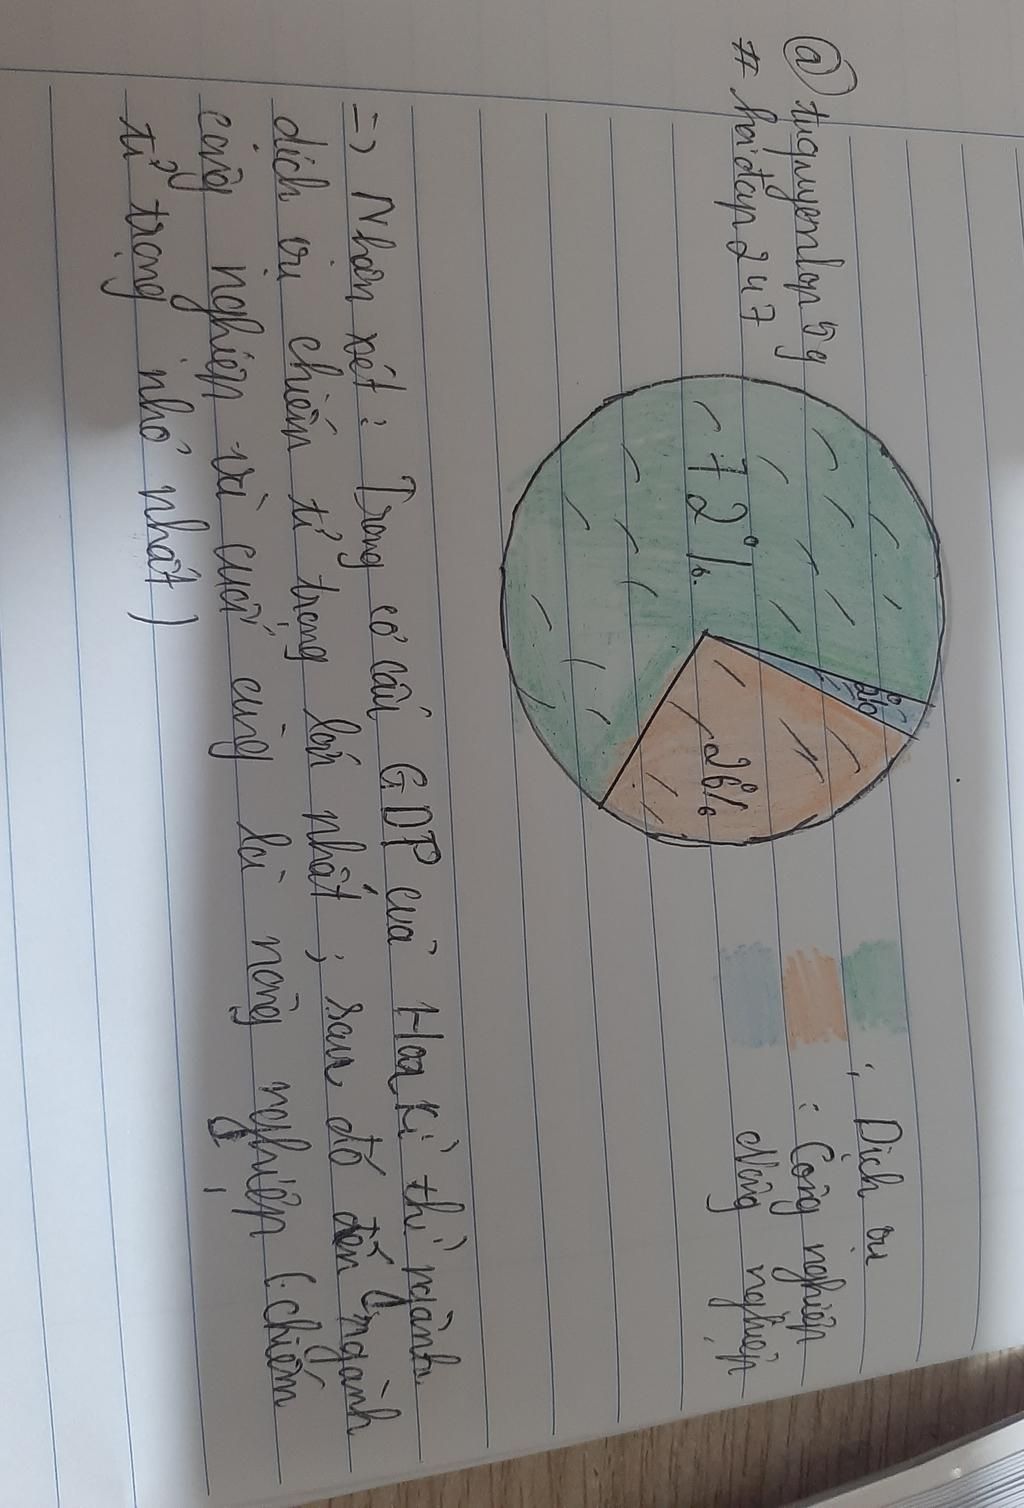 @ tuquyenlop59
# hoidap247
72%
2%
26%
: Dịch vụ
: Công nghiệp
Nông nghiệp
=> Nhận xét : Trong cơ cấu GDP của Hoa Kì thì ngành
dịch vụ chiếm tỉ trọng lớn nhất ; sau đó đến ngành
công nghiệp và cuối cùng là nông nghiệp (chiếm
tỉ trọng nhỏ nhất)